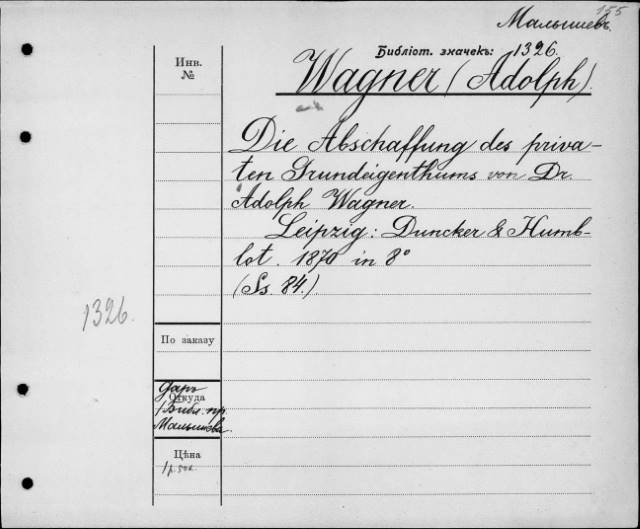 155
Малышевъ.
Библіот. значекъ: 1326.
Инв.
№
Wagner (Adolph).
Die Abschaffung des priva-
ten Grundeigenthums von Dr.
Adolph Wagner.
Leipzig: Duncker & Humb-
lot. 1870 in 8°
(Ss. 84.)
1326.
По заказу
Откуда
Даръ
Библ. пр.
Малышева.
Цѣна
1 р. 50 к.